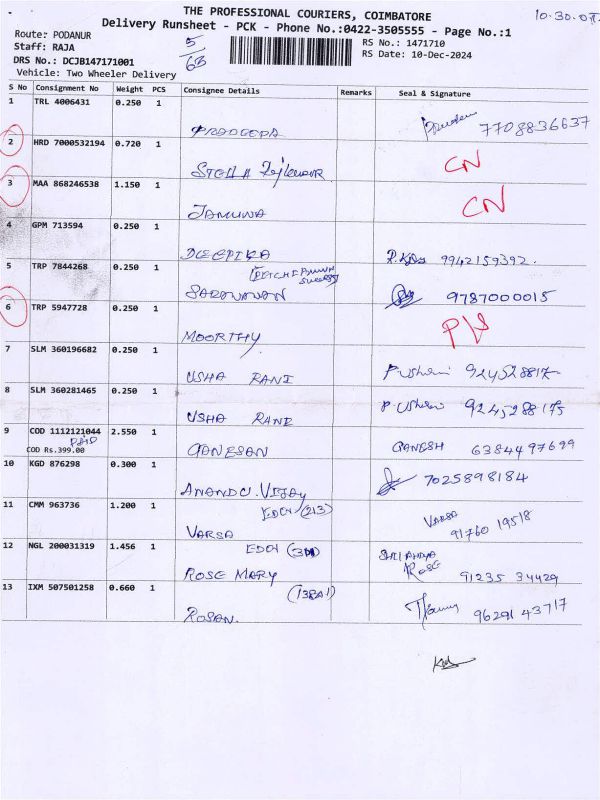 THE PROFESSIONAL COURIERS, COIMBATORE
10.30.
Delivery Runsheet - PCK - Phone No.:0422-3505555 - Page No.:1
Route: PODANUR
5/63
RS No.: 1471710
Staff: RAJA
RS Date: 10-Dec-2024
DRS No.: DCJB147171001
Vehicle: Two Wheeler Delivery
S No Consignment No Weight PCS Consignee Details Remarks Seal & Signature
1 TRL 4006431 0.250 1
PRADEEPA 7708836637
2 HRD 7000532194 0.720 1
STELLA CN
3 MAA 868246538 1.150 1
JAMUNA CN
4 GPM 713594 0.250 1
DEEPIKA 9942159392.
5 TRP 7844268 0.250 1
SARAVANAN 9787000015
6 TRP 5947728 0.250 1
MOORTHY
7 SLM 360196682 0.250 1
USHA RANI P. Usharani
8 SLM 360281465 0.250 1
USHA RANI P. Usharani 9245288175
9 COD 1112121044 2.550 1
PAID
COD Rs.399.00 GANESAN GANESH 6384497699
10 KGD 876298 0.300 1
ANANDU.VIJAY 7025898184
11 CMM 963736 1.200 1
EDCH (213)
VARSA VARSA 91760 19518
12 NGL 200031319 1.456 1
EDCH
ROSE MARY ROSE 91235 34429
13 IXM 507501258 0.660 1
ROSAN. 96291 43717